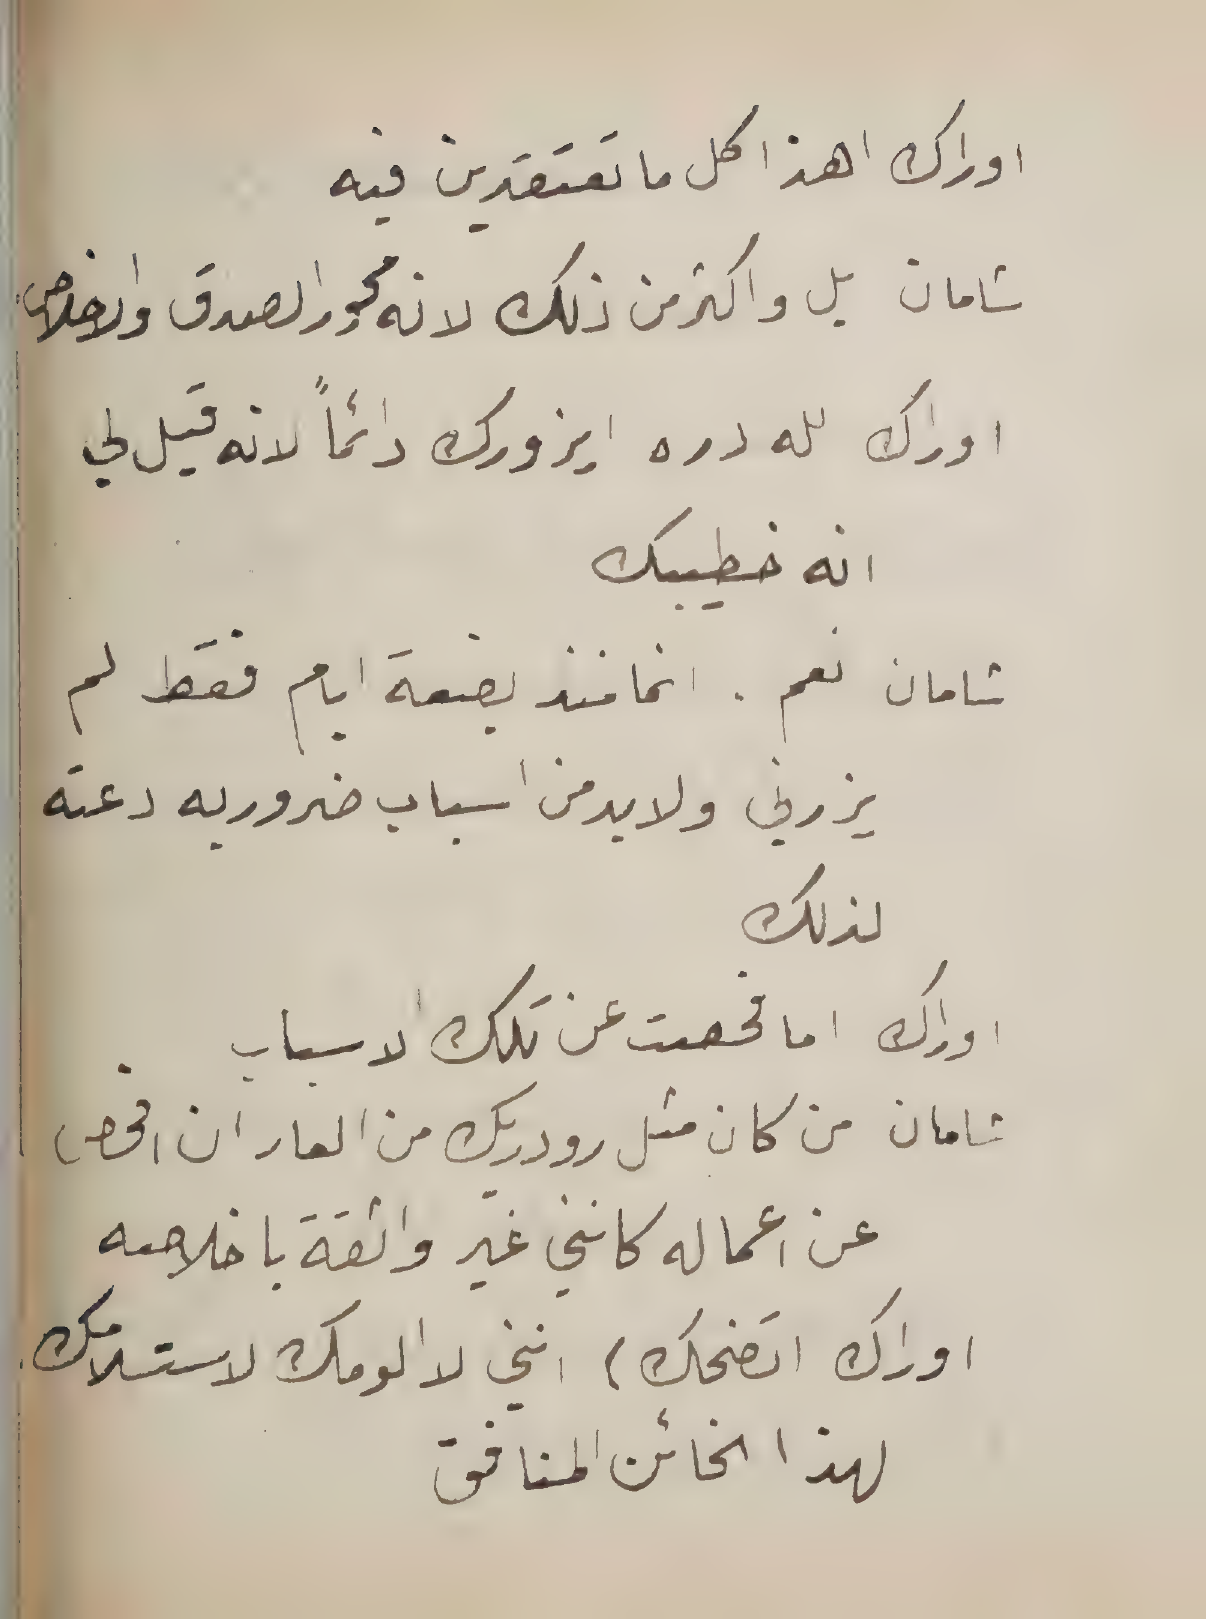 اوراك اهذا كل ما تعتقدين فيه
شامان بل واكثر من ذلك لانه محور الصدق والاخلاص
اوراك لله دره ايزورك دائماً لانه قيل لي
انه خطيبك
شامان نعم . انما منذ بضعة ايام فقط لم
يزرني ولابد من اسباب ضروريه دعته
لذلك
اوراك اما فحصت عن تلك الاسباب
شامان من كان مثل رودريك من العار ان افحص
عن اعماله كانني غير واثقة باخلاصه
اوراك (تضحك) انني لا الومك لاستسلامك
لهذا الخائن المنافق